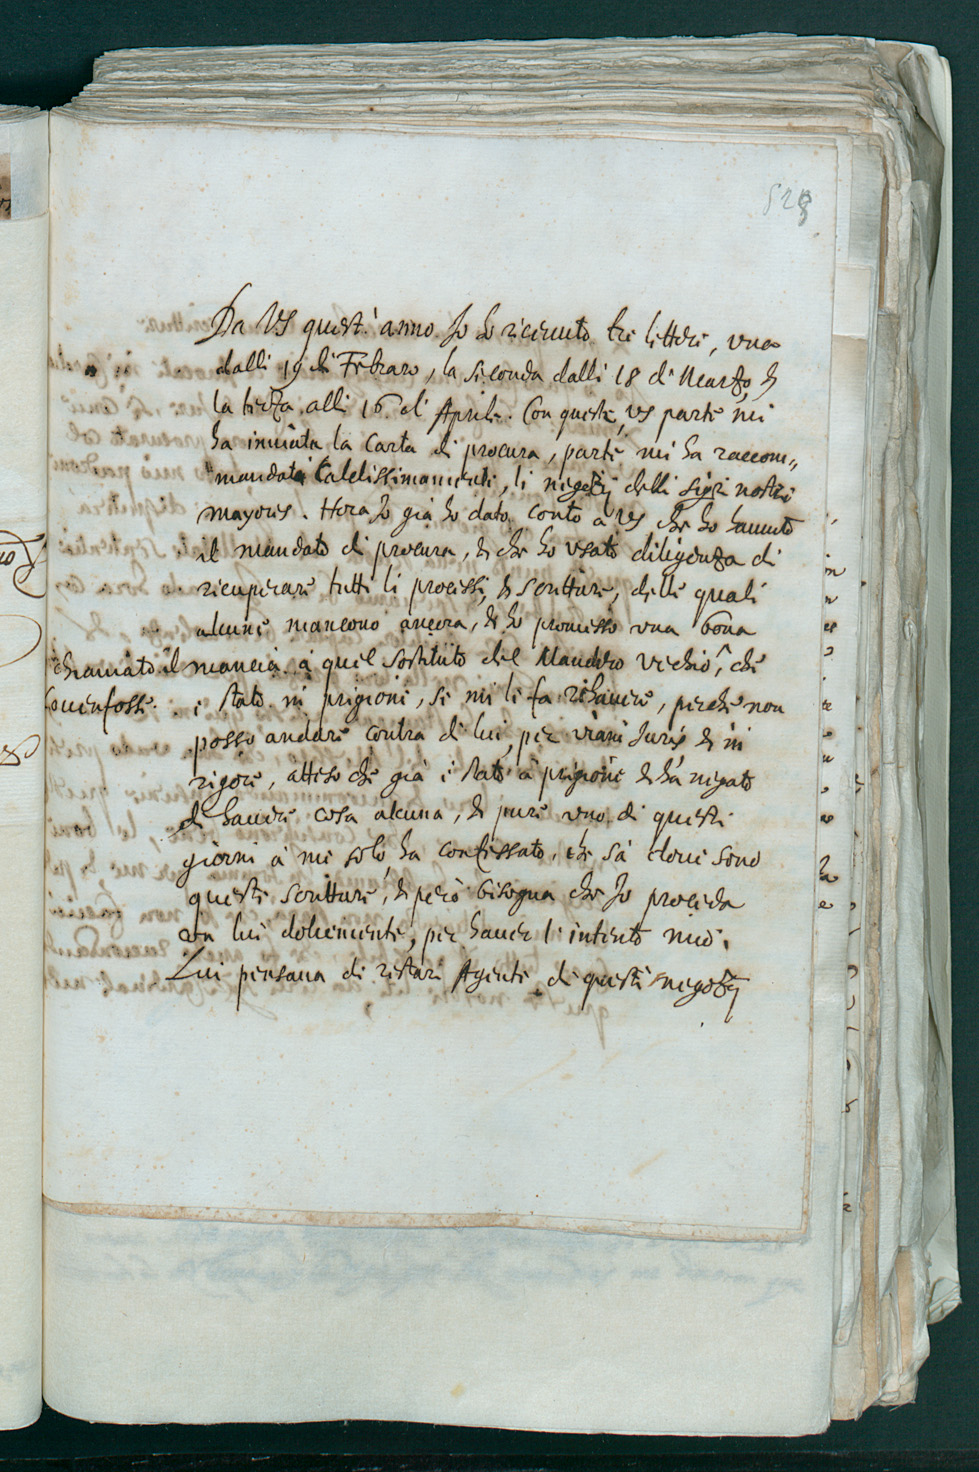 528
Da VS quest' anno Io ho riceuuto tre littere, vna
dalli 19 di Febraro, la seconda dalli 18 di Marzo, &
la terza alli 16 di Aprile. Con queste, VS parte mi
ha inuiata la carta di procura, parte mi ha raccom„
"mandata caldissimamente, li negozij delli sig.ri nostri
mayores. Hora Io già ho dato conto a VS che ho hauuto
il mandato di procura, & che ho vsato diligenza di
ricuperare tutti li processi, & scritture, delle quali
alcune mancono ancora, & ho promesso vna bona
mancia à quel sostituto del Mandero vechio, che
chiamato il
Couenfosse.
è stato in prigione, se mi le fa rihauere, perche non
posso andare contra di lui, per viam Juris & in
rigore, atteso che già è stato à prigione & hà negato
di hauere cosa alcuna, & pure vno di questi
giorni à me solo ha confessato, che sà doue sono
queste scritture, & però bisogna che Io proceda
con lui dolcemente, per hauer l'intento mio.
Lui pensaua di restare Agente di questi negozij